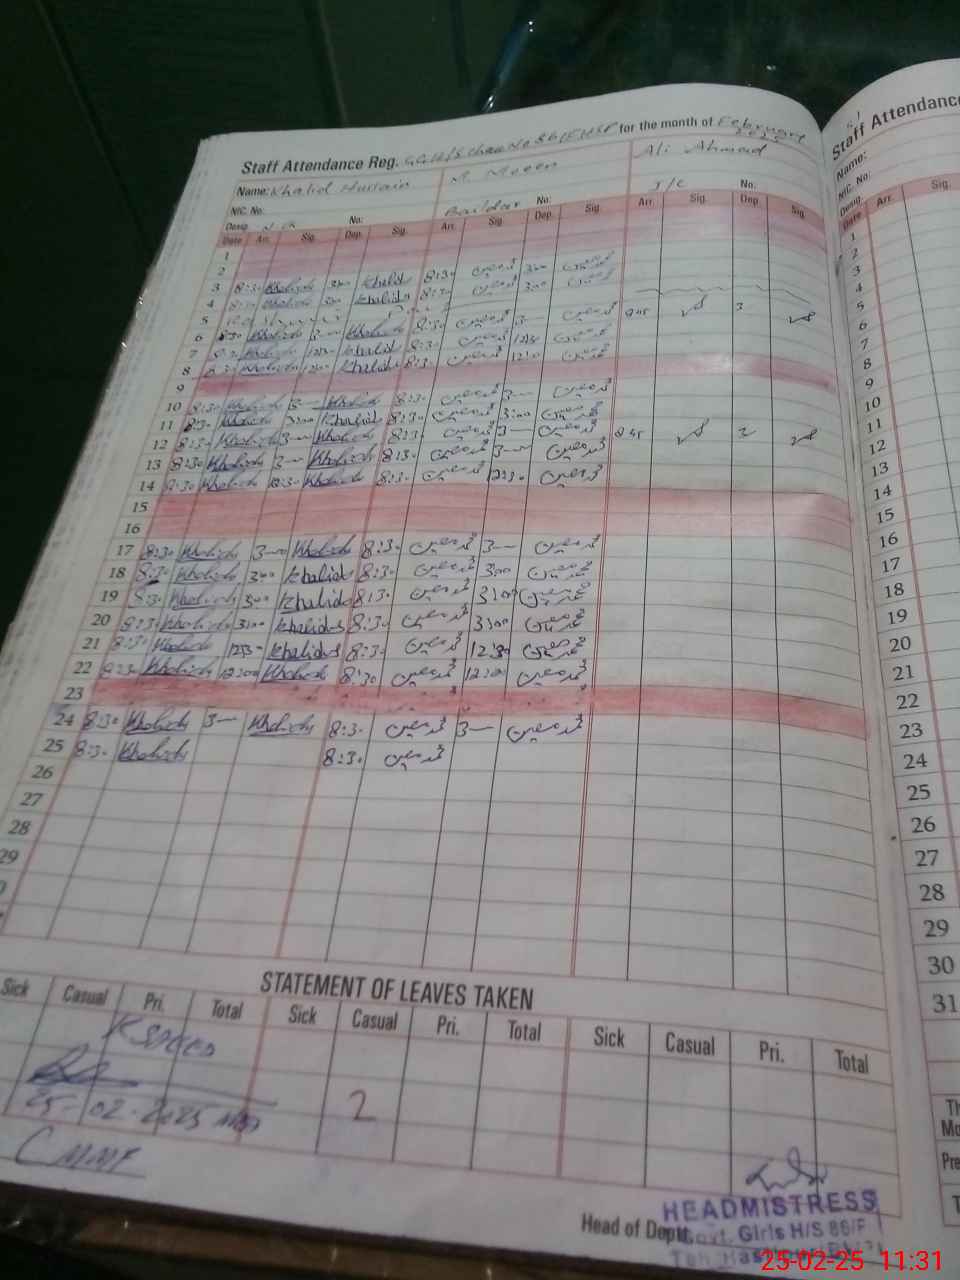 Staff Attendance Reg. for the month of February
Staff Attendance
Name: Khalid Hussain M. Moeen Ali Ahmad
Name:
NIC. No: No: No: I/C No:
NIC. No:
Desig. Baildar
Desig.
Date Arr. Sig. Dep. Sig. Arr. Sig. Dep. Sig. Arr. Sig. Dep. Sig.
Date Arr. Sig.
1
2
3 8:30 Khalid 3:00 Khalid 8:30 محمد معین 3:00 محمد معین
4 8:30 Khalid 3:00 Khalid 8:30 محمد معین 3:00 محمد معین
5
6 8:30 Khalid 3 Khalid 8:30 محمد معین 3 محمد معین 8 45 3
7 8:30 Khalid 12:30 Khalid 8:30 محمد معین 12:30 محمد معین
8 8:30 Khalid 12:00 Khalid 8:30 محمد معین 12:00 محمد معین
9
10 8:30 Khalid 3 Khalid 8:30 محمد معین 3 محمد معین
11 8:30 Khalid 3:00 Khalid 8:30 محمد معین 3:00 محمد معین
12 8:30 Khalid 3 Khalid 8:30 محمد معین 3 محمد معین 8 45 3
13 8:30 Khalid 3 Khalid 8:30 محمد معین 3 محمد معین
14 8:30 Khalid 12:30 Khalid 8:30 محمد معین 12:30 محمد معین
15
16
17 8:30 Khalid 3 Khalid 8:30 محمد معین 3 محمد معین
18 8:30 Khalid 3:00 Khalid 8:30 محمد معین 3:00 محمد معین
19 8:30 Khalid 3:00 Khalid 8:30 محمد معین 3:00 محمد معین
20 8:30 Khalid 3:00 Khalid 8:30 محمد معین 3:00 محمد معین
21 8:30 Khalid 12:30 Khalid 8:30 محمد معین 12:30 محمد معین
22 8:30 Khalid 12:00 Khalid 8:30 محمد معین 12:00 محمد معین
23
24 8:30 Khalid 3 Khalid 8:30 محمد معین 3 محمد معین
25 8:30 Khalid 8:30 محمد معین
26
27
28
29
1
2
3
4
5
6
7
8
9
10
11
12
13
14
15
16
17
18
19
20
21
22
23
24
25
26
27
28
29
30
31
STATEMENT OF LEAVES TAKEN
Sick Casual Pri. Total Sick Casual Pri. Total Sick Casual Pri. Total
2
25-02-2025
Head of Deptt.
HEADMISTRESS
Govt. Girls H/S 86/F
25-02-25 11:31